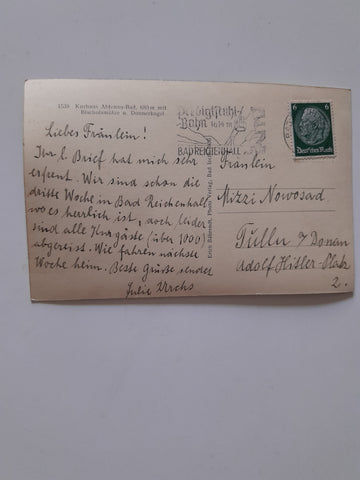 1538 Kurhaus Abtenau-Bad, 690 m mit
Bischofsmütze u. Donnerkogel
Liebes Fräulein!
Ihr l. Brief hat mich sehr
erfreut. Wir sind schon die
dritte Woche in Bad Reichenhall
wo es herrlich ist, doch leider
sind alle Kurgäste (über 1000)
abgereist. Wie fahren nächste
Woche heim. Beste Grüsse sendet
Julie
Predigtstuhl-
Bahn 1614 m
BAD REICHENHALL
6
Deutsches Reich
Fräulein
Mizzi Nowosad
Tulln a/Donau
Adolf Hitler-Platz
2.